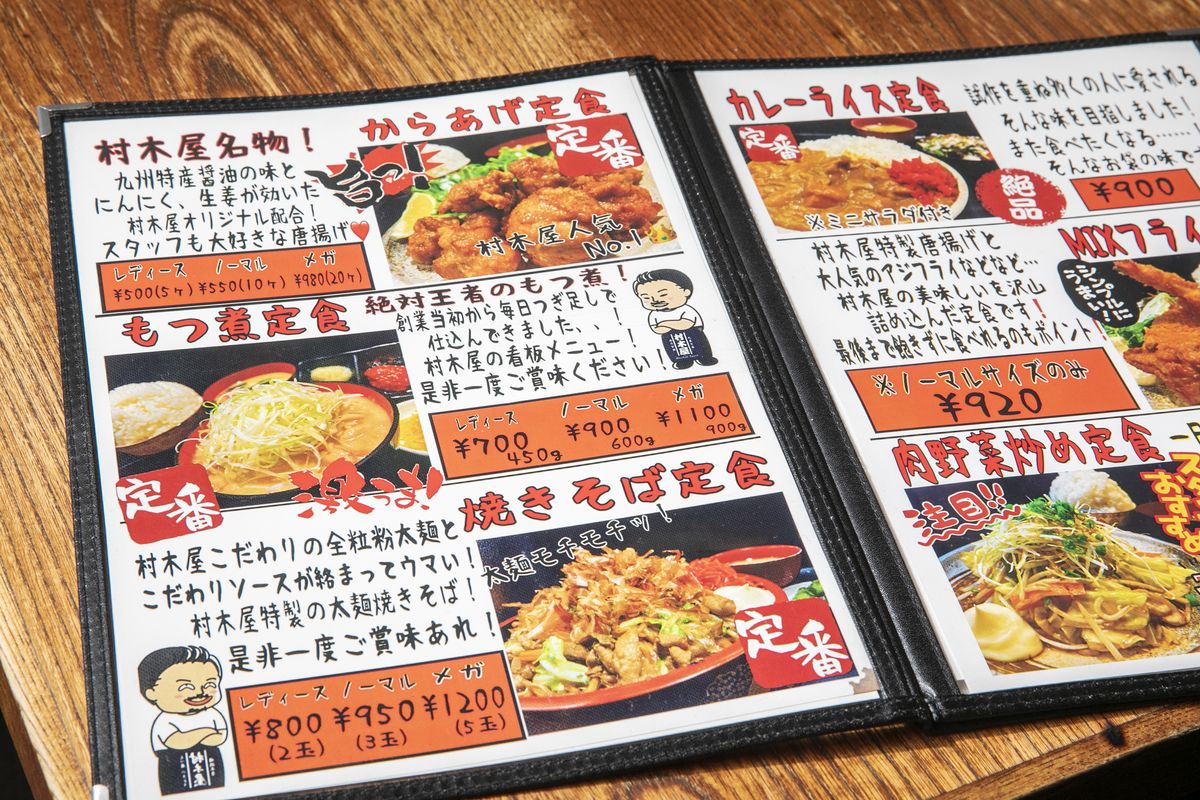 村木屋名物！
九州特産醤油の味と
にんにく、生姜が効いた
村木屋オリジナル配合！
スタッフも大好きな唐揚げ
レディース ノーマル メガ
¥500(5ヶ) ¥550(10ヶ) ¥980(20ヶ)
からあげ定食
旨っ！
定番
村木屋人気
No.1
もつ煮定食
絶対王者のもつ煮！
創業当初から毎日つぎ足しで
仕込んできました、、！
村木屋の看板メニュー！
是非一度ご賞味ください！
村木屋
レディース ノーマル メガ
¥700 ¥900 ¥1100
450g 600g 900g
定番
激うま！
焼きそば定食
村木屋こだわりの全粒粉太麺と
こだわりソースが絡まってウマい！
村木屋特製の太麺焼きそば！
是非一度ご賞味あれ！
太麺モチモチッ！
定番
レディース ノーマル メガ
¥800 ¥950 ¥1200
(2玉) (3玉) (5玉)
村木屋
カレーライス定食
定番
※ミニサラダ付き
絶品
試作を重ね多くの人に愛される
そんな味を目指しました！
また食べたくなる……
そんなお袋の味で
¥900
MIXフライ
シンプルに
うまい！！
村木屋特製唐揚げと
大人気のアジフライなどなど…
村木屋の美味しいを沢山
詰め込んだ定食です！
最後まで飽きずに食べれるのもポイント！
※ノーマルサイズのみ
¥920
肉野菜炒め定食
注目！！
おすすめ